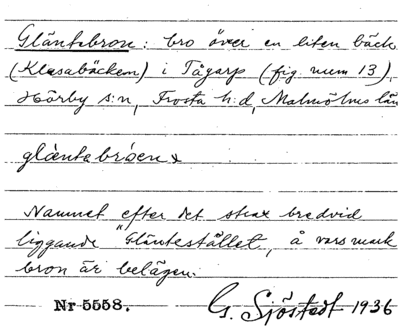 Gläntebron: bro över en liten bäck
(Klasabäcken) i Tågarp (fig. num 13),
Hörby s:n, Frosta h:d, Malmöhus län
Namnet efter det strax bredvid
liggande "Gläntestället, å vars mark
bron är belägen.
Nr 5558. G. Sjöstedt 1936